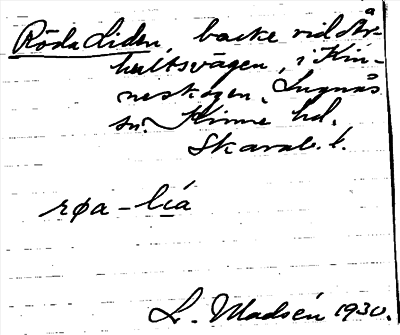 Röda Liden, backe vid År-
hultsvägen, i Kin-
neskogen. Lugnås
sn. Kinne hd.
Skarab. l.
røa – lia
L. Madsén 1930.